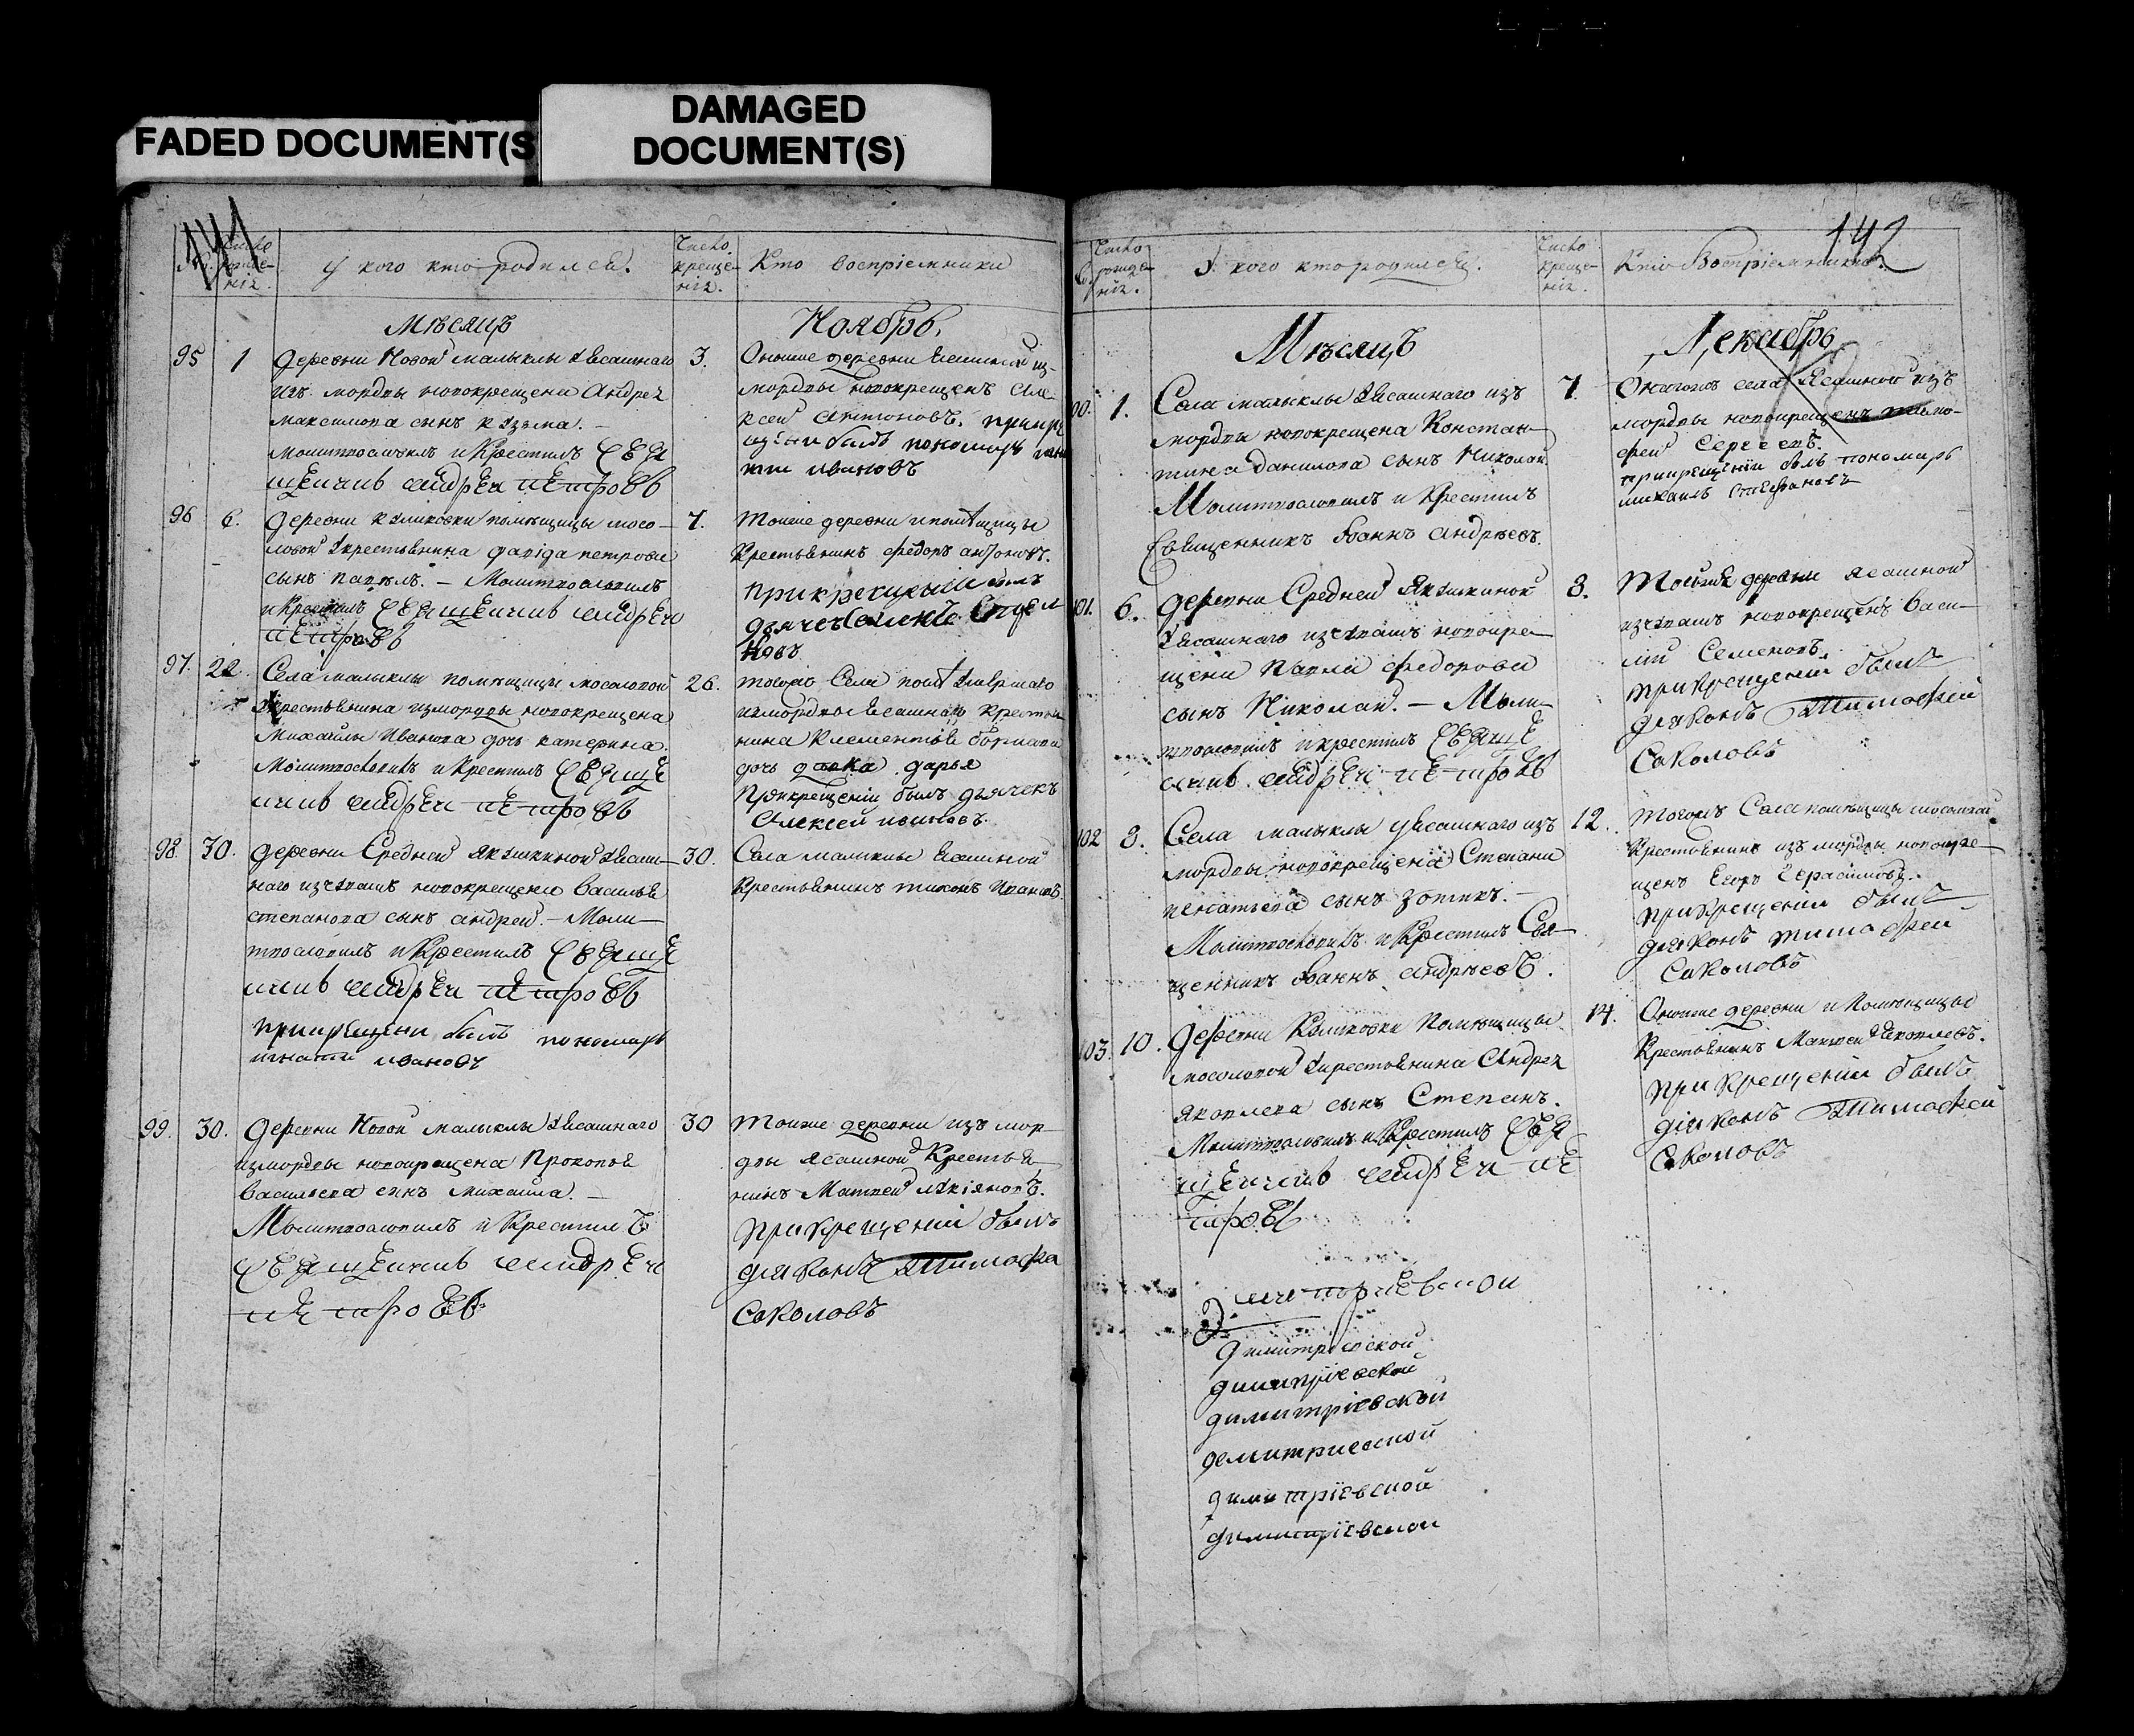 FADED DOCUMENT(S
DAMAGED
DOCUMENT(S)
141
Число
рожде-
нія.
У кого кто родился.
Число
креще-
нія.
Кто воспріемники
Мѣсяцъ
Ноябрь
95
1
деревни Новой малыклы уясашнаго
изъ мордвы новокрещена Андрея
максимова сынъ кузма. –
молитвословилъ и Крестилъ Свя
щенникъ андрей петровъ
3.
Оноже деревни ясашной из
мордвы новокрещенъ Але
ксей антоновъ. прикре
щении былъ пономарь игна
тии ивановъ
96
6.
деревни куликовки помѣщицы мосо–
ловой укрестьянина давида петрова
сынъ павелъ. – Молитвословилъ
и Крестилъ Священникъ андрей
петровъ
7.
Тоеже деревни и помѣщицы
Крестьянинъ федоръ антоновъ.
прикрещении былъ
дьячекъ
97.
22.
Села малыклы помѣщицы мосоловой
укрестьянина измордвы новокрещена
Михайлы Иванова дочь катерина.
Молитвословилъ и Крестилъ Свяще
нникъ андрей петровъ
26.
тогожъ Села
измордвы ясашнаго крестья
нина
дочь дарья
Прикрещеніи былъ дьячекъ
Алексей ивановъ.
98.
30.
деревни Средней Якушкиной уясаш–
наго изчувашъ новокрещена василья
степанова сынъ андрей. – Моли–
твословилъ и Крестилъ Свяще
нникъ андрей петровъ
прикрещении былъ пономарь
игнатии ивановъ
30.
Села малыклы ясашной
Крестьянинъ тихонъ Ивановъ.
99.
30.
деревни Новой малыклы уясашнаго
измордвы новокрещена Прокопья
васильева сынъ михайла. –
Молитвословилъ и Крестилъ
Священникъ андрей
петровъ
30
Тоеже деревни изъ мор
двы ясашной Крестья
нинъ Матвей
прикрещеніи былъ
діаконъ Тимофей
Соколовъ
142
Число
рожде-
нія.
У кого кто родился.
Число
креще-
нія.
Кто Воспріемники.
Мѣсяцъ
Декабрь
100.
1.
Села малыклы уясашнаго изъ
мордвы новокрещена Констан–
тина данилова сынъ Николай.
Молитвословилъ и Крестилъ
Священникъ Іоаннъ андрѣевъ.
7.
Онагожъ села Ясашной изъ
мордвы новокрещенъ тимо–
фей Сергеевъ.
прикрещеніи былъ пономарь
михаилъ Стефановъ
101.
6.
деревни Средней Якушкиной
уясашнаго изчувашъ новокре–
щена Павла федорова
сынъ Николай. – Моли–
твословилъ и крестилъ Свяще
нникъ андрей петровъ
8.
Тоейже деревни ясашной
изчувашъ новокрещенъ васи–
лій Семеновъ.
прикрещеніи былъ
діаконъ Тимофей
Соколовъ
102
8.
Села малыклы уясашнаго изъ
мордвы новокрещена Степана
игнатьева сынъ зотикъ. –
Молитвословилъ и Крестилъ Свя–
щенникъ Іоаннъ андрѣевъ.
12.
Тогожъ Села помѣщицы мосоловой
Крестьянинъ изъ мордвы новокре–
щенъ Егоръ Герасимовъ.
прикрещеніи былъ
діаконъ тимофей
Соколовъ
103.
10.
деревни Куликовки Помѣщицы
мосоловой укрестьянина Андрея
яковлева сынъ Степанъ.
Молитвословилъ и Крестилъ Свя
щенникъ андрей пе
тровъ
14.
Оноеже деревни и Помѣщицы
Крестьянинъ Матвей Яковлевъ.
прикрещеніи былъ
діаконъ Тимофей
Соколовъ
димитріевской
димитріевской
димитріевской
демитриевской
димитріевской
димитріевской